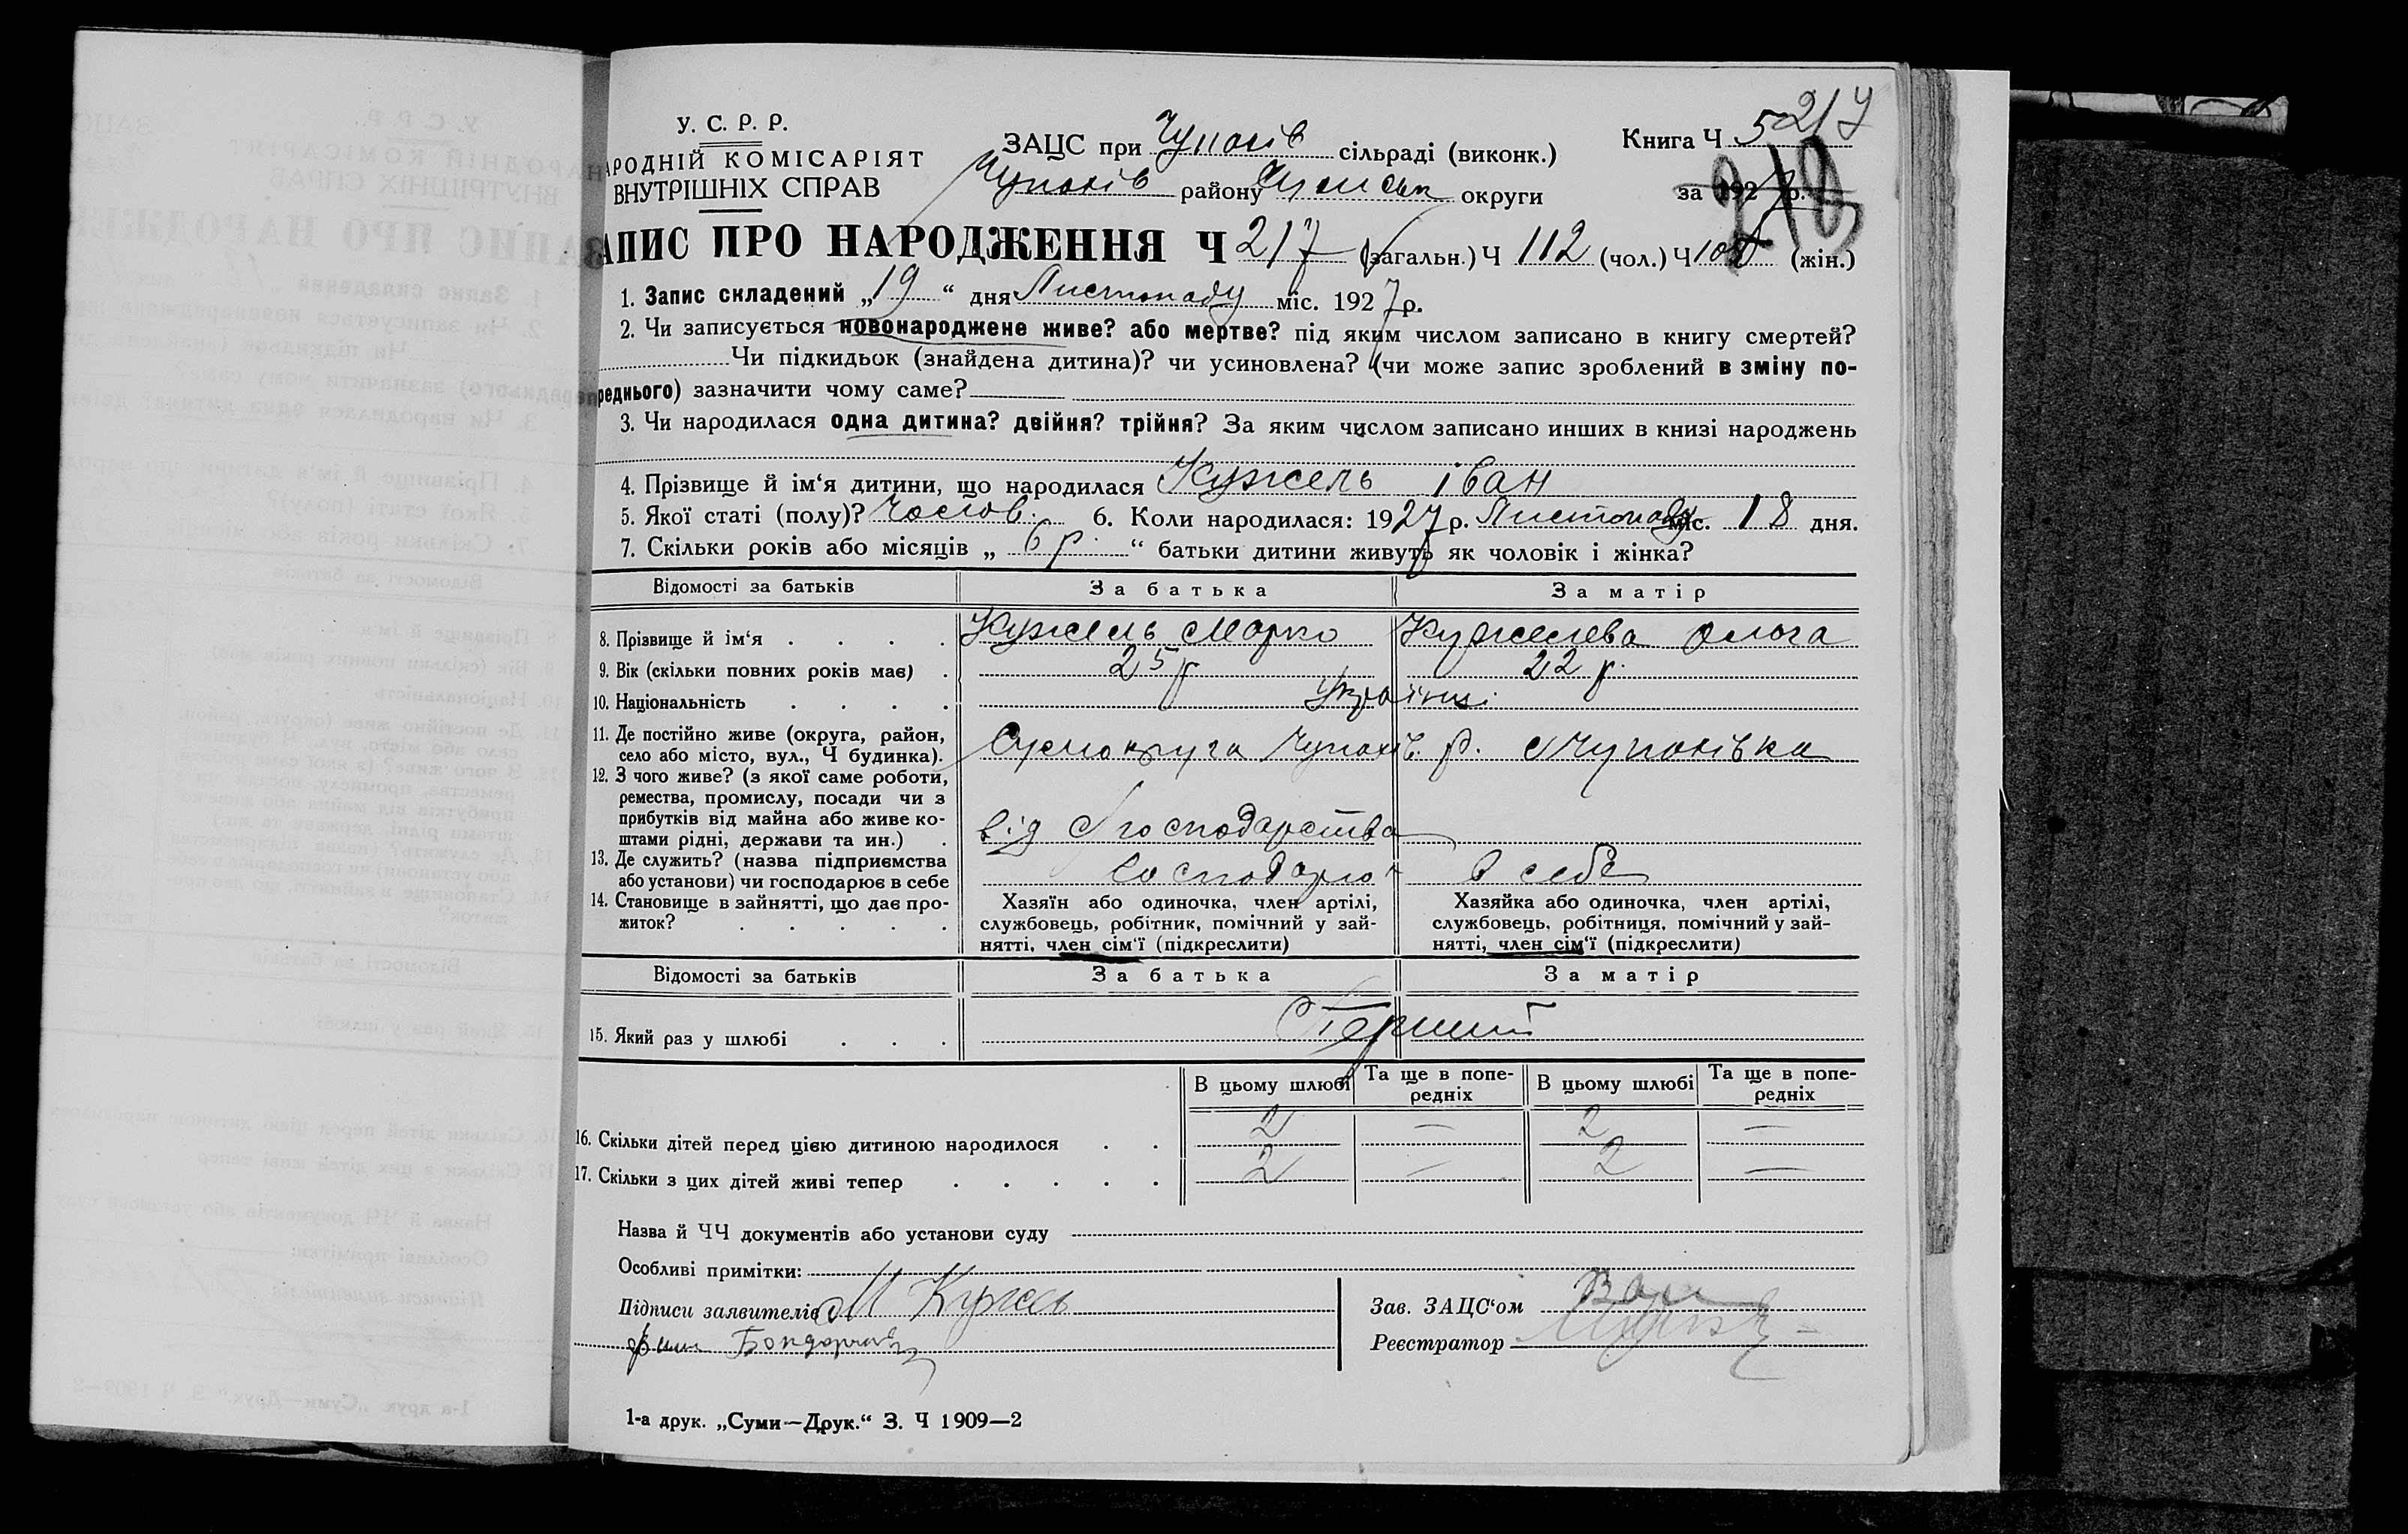 217
У. С. Р. Р.
НАРОДНІЙ КОМІСАРІЯТ
ВНУТРІШНІХ СПРАВ
ЗАЦС при Чупахів сільраді (виконк.)
Чупахів району Сумськ округи
Книга Ч 5
за 1927 р.
218
ЗАПИС ПРО НАРОДЖЕННЯ Ч 217 (загальн.) Ч 112 (чол.) Ч 105 (жін.)
1. Запис складений „19“ дня Листопаду міс. 1927 р.
2. Чи записується новонароджене живе? або мертве? під яким числом записано в книгу смертей?
Чи підкидьок (знайдена дитина)? чи усиновлена? (чи може запис зроблений в зміну по-
реднього) зазначити чому саме?
3. Чи народилася одна дитина? двійня? трійня? За яким числом записано инших в книзі народжень
4. Прізвище й ім‘я дитини, що народилася Кужель іван
5. Якої статі (полу)? Чолов. 6. Коли народилася: 1927 р. Листопаду міс. 18 дня.
7. Скільки років або місяців „ 6 р. “ батьки дитини живуть як чоловік і жінка?
Відомості за батьків За батька За матір
8. Прізвище й ім‘я . . . . Кужель Марко Кужелева Ольга
9. Вік (скільки повних років має) . 25 р 22 р.
10. Національність . . . . Українці
11. Де постійно живе (округа, район,
село або місто, вул., Ч будинка). Сумокруга Чупахів. р. с Чупахівка
12. З чого живе? (з якої саме роботи,
ремества, промислу, посади чи з
прибутків від майна або живе ко-
штами рідні, держави та ин.) . від Господарства
13. Де служить? (назва підприємства
або установи) чи господарює в себе Господарю в себе
14. Становище в зайнятті, що дає про-
житок? . . . . .
Хазяїн або одиночка, член артілі,
службовець, робітник, помічний у зай-
нятті, член сім‘ї (підкреслити)
Хазяйка або одиночка, член артілі,
службовець, робітниця, помічний у зай-
нятті, член сім‘ї (підкреслити)
Відомості за батьків За батька За матір
15. Який раз у шлюбі . . . Перший
В цьому шлюбі Та ще в попе-
редніх В цьому шлюбі Та ще в попе-
редніх
16. Скільки дітей перед цією дитиною народилося . . 2 — 2 —
17. Скільки з цих дітей живі тепер . . . . . 2 — 2 —
Назва й ЧЧ документів або установи суду
Особливі примітки:
Підписи заявителів М Кужель
Зав. ЗАЦС‘ом
Реєстратор
1-а друк. „Суми—Друк.“ З. Ч 1909—2